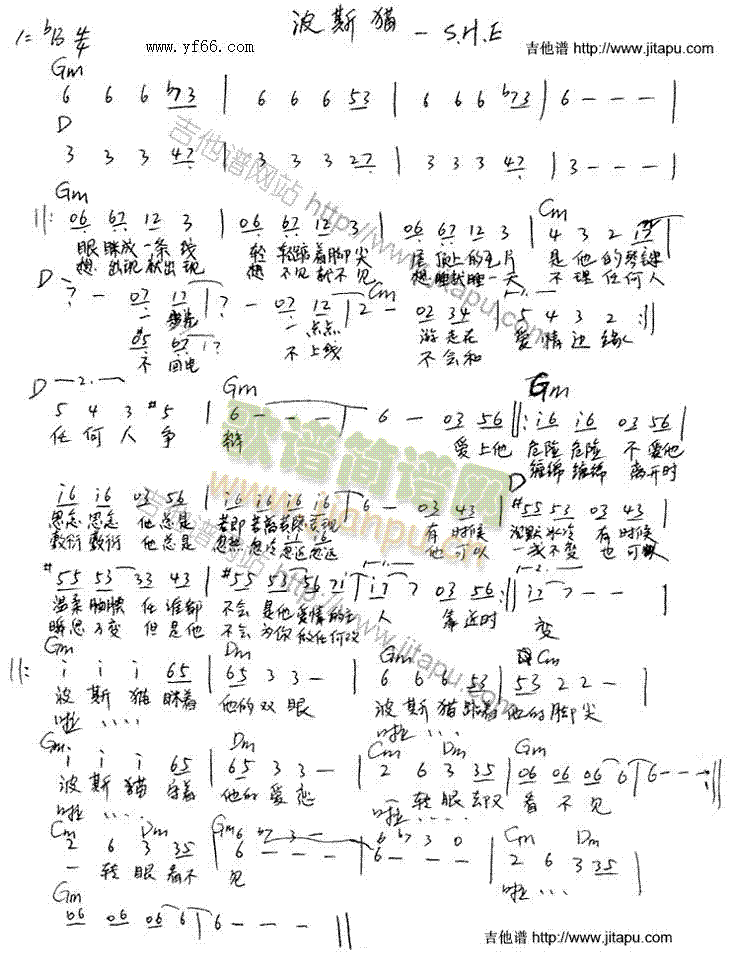 波斯猫 — S.H.E
1=♭B 4/4
www.yf66.com
吉他谱 http://www.jitapu.com
Gm
6 6 6 ♭7 3 | 6 6 6 5 3 | 6 6 6 ♭7 3 | 6 - - - |
D
3 3 3 4 7 | 3 3 3 2 7 | 3 3 3 4 7 | 3 - - - |
Gm Cm
||: 06 67 12 3 | 06 67 12 3 | 06 67 12 3 | 4 3 2 17 |
眼眯成一条线 轻轻踮着脚尖 尾顶上的毛片 是他的琴键
想出现就出现 想不见就不见 想睡就睡一天 不理任何人
D Cm
7 - 07 12 | 7 - 07 12 | 2 - 02 34 | 5 4 3 2 :||
一步步 一点点 游走在爱情边缘
05 67 17
不回电 不上线 不会和
D Gm Gm
5 4 3 #5 | 6 - - - | 6 - 03 56 ||: i6 i6 03 56 |
任何人争 辩 爱上他 危险危险 不爱他
缠绵缠绵 离开时
D
i6 i6 03 56 | i6 i6 i6 i6 | 6 - 03 43 | #55 53 03 43 |
思念思念 他总是 若即若离若隐若现 有时候 沉默冰冷 有时候
敷衍敷衍 他总是 忽热忽冷忽近忽远 他可以 一成不变 也可以
#55 53 33 43 | #55 53 56 7i | i7 7 03 56 :|| i7 7 - - |
温柔腼腆 任谁都 不会是他爱情的主人 靠近时 变
瞬息万变 但是他 不会为你做任何改
Gm Dm Gm Cm
||: i i i 65 | 65 3 3 - | 6 6 6 53 | 53 2 2 - |
波斯猫眯着 他的双眼 波斯猫踮着 他的脚尖
啦.... 啦....
Gm Dm Cm Dm Gm
i i i 65 | 65 3 3 - | 2 6 3 35 | 06 06 06 6 | 6 - - - :||
波斯猫守着 他的爱恋 一转眼却又 看不见
啦.... 啦....
Cm Dm Gm Cm Dm
2 6 3 35 | 6 ♭7 3 - | 6 ♭7 3 0 | 2 6 3 35 |
6 - - - 6 - - -
一转眼看不 见 啦...
Gm
06 06 06 6 | 6 - - - ||
吉他谱 http://www.jitapu.com
吉他谱网站 http://www.jitapu.com
吉他谱网站 http://www.jitapu.com
歌谱简谱网
www.jianpu.cn